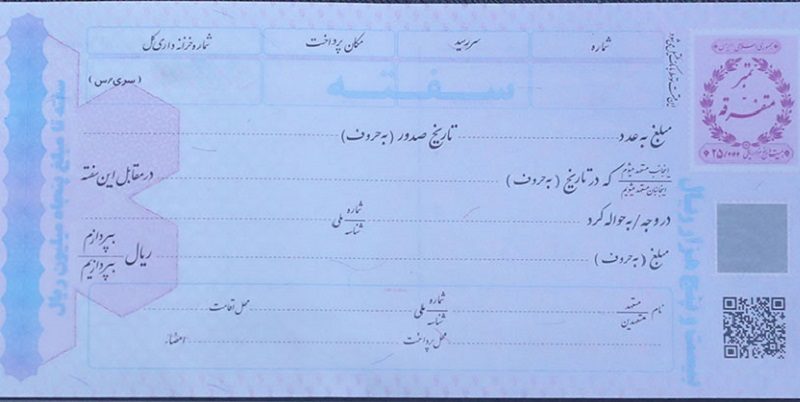 شماره
سررسید
مکان پرداخت
شماره خزانه داری کل
سفته
(سری/س)
مبلغ به عدد تاریخ صدور (به حروف)
اینجانب متعهد میشوم
اینجانبان متعهد میشویم
که در تاریخ (به حروف) در مقابل این سفته
در وجه / به حواله کرد شماره شناسه ملی
مبلغ (به حروف) ریال بپردازم بپردازیم
نام متعهد متعهدین شماره شناسه ملی محل اقامت
محل پرداخت امضاء
جمهوری اسلامی ایران
تمبر
متفرقه
۲۵/۰۰۰
بیست و پنج هزار ریال
سفته تا مبلغ پنجاه میلیون ریال